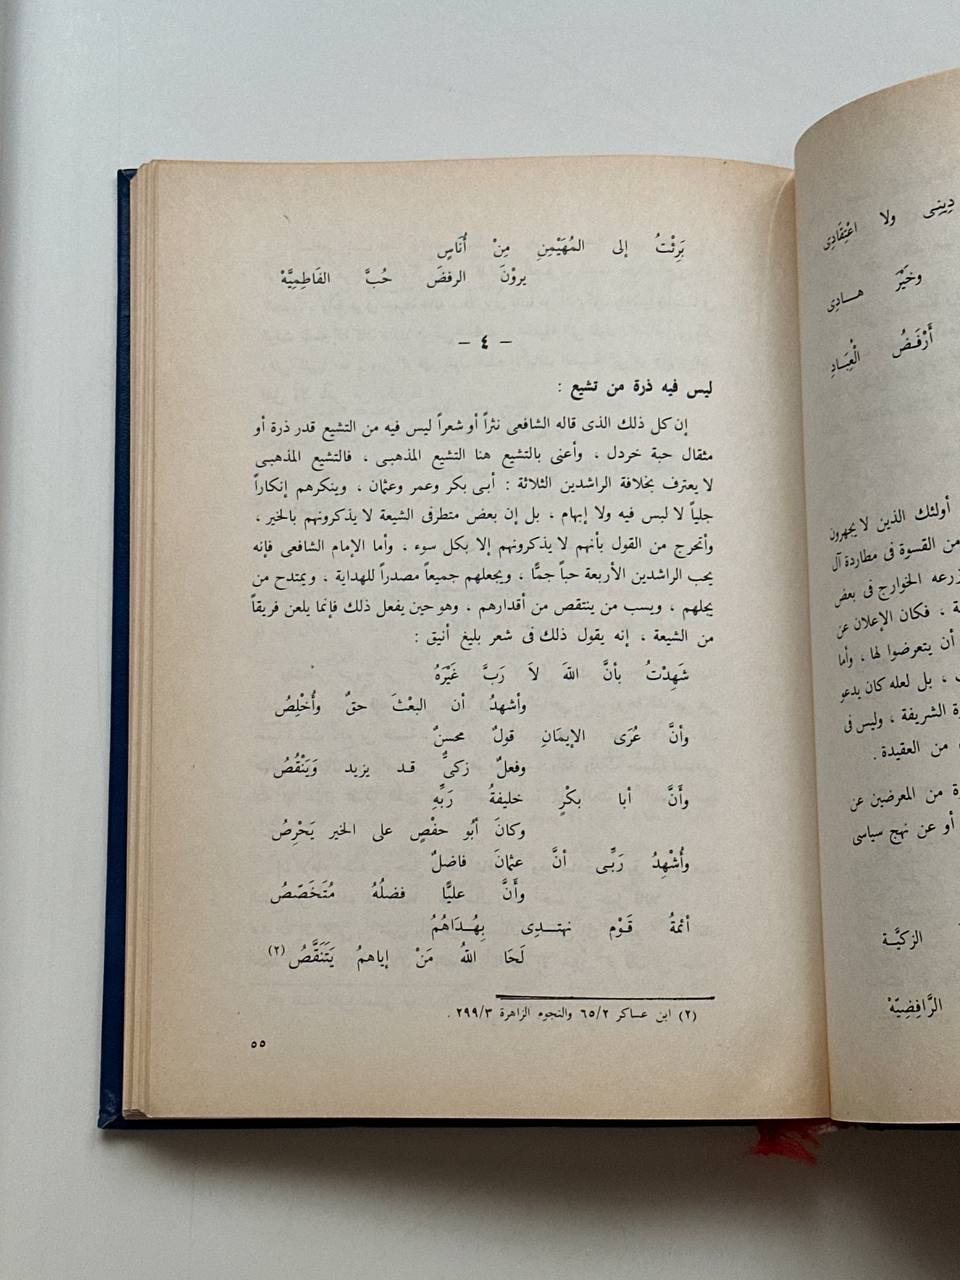 بَرِئْتُ إلى المُهَيْمِنِ مِنْ أُنَاسٍ
يروْنَ الرفضَ حُبَّ الفَاطِمِيَّهْ
– ٤ –
ليس فيه ذرة من تشيع :
إن كل ذلك الذى قاله الشافعى نثراً أو شعراً ليس فيه من التشيع قدر ذرة أو
مثقال حبة خردل ، وأعنى بالتشيع هنا التشيع المذهبى ، فالتشيع المذهبى
لا يعترف بخلافة الراشدين الثلاثة : أبى بكر وعمر وعثمان ، وينكرهم إنكاراً
جلياً لا لبس فيه ولا إبهام ، بل إن بعض متطرفى الشيعة لا يذكرونهم بالخير ،
وأتحرج من القول بأنهم لا يذكرونهم إلا بكل سوء ، وأما الإمام الشافعى فإنه
يحب الراشدين الأربعة حباً جمًّا ، ويجعلهم جميعاً مصدراً للهداية ، ويمتدح من
يجلهم ، ويسب من ينتقص من أقدارهم ، وهو حين يفعل ذلك فإنما يلعن فريقاً
من الشيعة ، إنه يقول ذلك فى شعر بليغ أنيق :
شَهِدْتُ بأنَّ اللهَ لاَ رَبَّ غَيْرَهُ
وأشهدُ أن البعْثَ حقٌ وأُخْلِصُ
وأنَّ عُرَى الإيمَانِ قولٌ محسنٌ
وفعلٌ زكىٌّ قد يزيد وَيَنْقُصُ
وأَنَّ أبا بكْرٍ خليفةُ رَبِّهِ
وكانَ أبُو حفْصٍ على الخير يَحْرِصُ
وأُشْهِدُ رَبِّى أنَّ عثمانَ فاضلٌ
وأَنَّ عليًّا فضلُهُ مُتَخَصّصُ
أئمةُ قَوْم نهتدِى بِهُدَاهُمُ
لَحَا اللهُ مَنْ إياهمُ يَتَنَقَّصُ (٢)
(٢) ابن عساكر ٦٥/٢ والنجوم الزاهرة ٢٩٩/٣ .
٥٥
دِينِى ولا اعْتِقَادِى
وخَيْرَ هادِى
أَرْفَضُ الْعِبَادِ
أولئك الذين لا يجهرون
من القسوة فى مطاردة آل
زرعه الخوارج فى بعض
فكان الإعلان عن
أن يتعرضوا لها ، وأما
، بل لعله كان يدعو
الشريفة ، وليس فى
من العقيدة .
من المعرضين عن
أو عن نهج سياسى
الزكيَّة
الرَّافِضِيّهْ